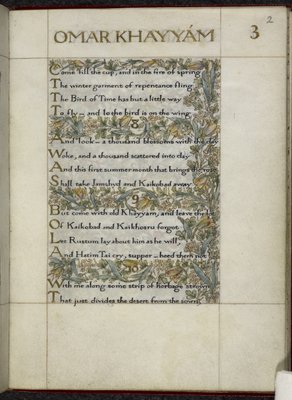 2
OMAR KHAYYÁM 3
Come fill the cup, and in the fire of spring
The winter garment of repentance fling
The Bird of Time has but a little way
To fly – and lo the bird is on the wing
8
And look – a thousand blossoms with the day
Woke, and a thousand scattered into clay
And this first summer month that brings the rose
Shall take Jamshyd and Kaikobad away
9
But come with old Khayyám, and leave the lot
Of Kaikobad and Kaikhosru forgot
Let Rustum lay about him as he will,
And Hatim Tai cry, supper – heed them not
10
With me along some strip of herbage strown
That just divides the desert from the sown